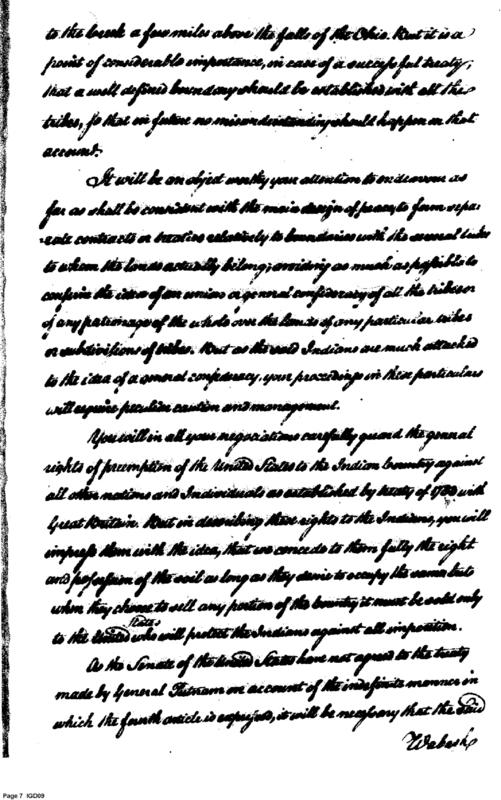 to the break a few miles above the falls of the Ohio. But it is a
point of considerable importance, in case of a successful treaty,
that a well defined boundary should be established with all the
tribes, so that in future no misunderstanding should happen on that
account.
It will be an object worthy your attention to endeavour as
far as shall be consistent with the main design of peace, to form sepa-
rate contracts or treaties relatively to boundaries with the several tribes
to whom the lands actually belong; avoiding as much as possible to
confirm the idea of an union or general confederacy of all the tribes or
of any patronage of the whole over the lands of any particular tribes
or subdivisions of tribes. But as the said Indians are much attached
to the idea of a general confederacy, your proceedings in these particulars
will require peculiar caution and management.
You will in all your negociations carefully guard the general
rights of preemption of the United States to the Indian Country against
all other nations and Individuals as established by treaty of 1783 with
Great Britain. But in describing these rights to the Indians, you will
impress them with the idea, that we concede to them fully the right
and possession of the soil as long as they desire to occupy the same but
when they choose to sell any portion of the Country it must be sold only
to the United States who will protect the Indians against all imposition.
As the Senate of the United States have not agreed to the treaty
made by General Putnam on account of the indefinite manner in
which the fourth article is expressed, it will be necessary that the said
Wabash
Page 7 IGD09